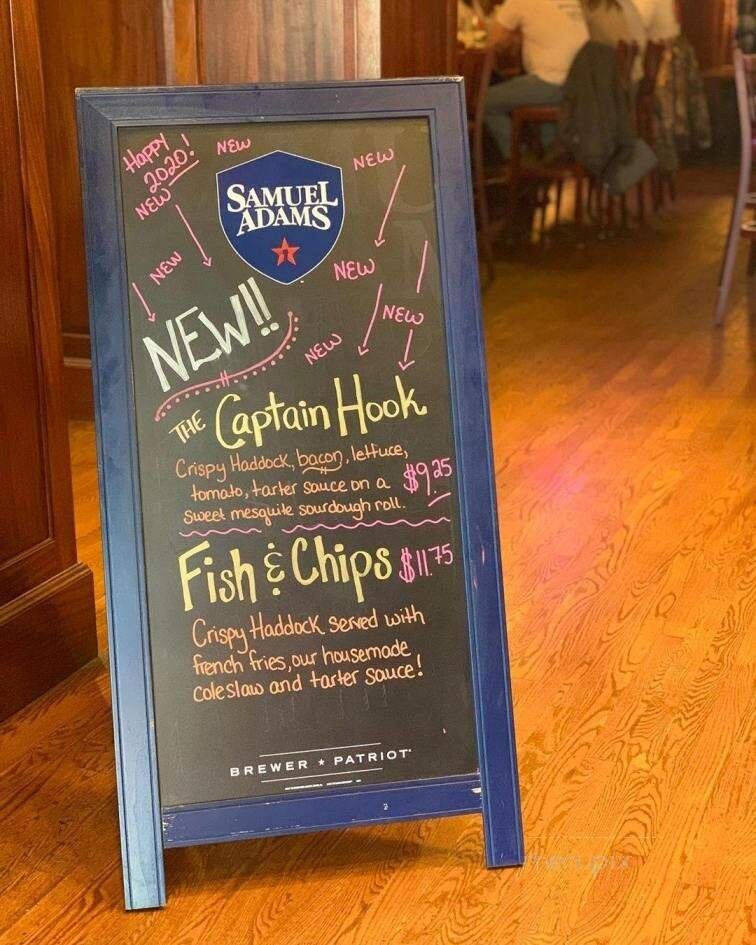 HAPPY
2020!
NEW
NEW
NEW
NEW
SAMUEL
ADAMS
NEW
NEW
NEW
NEW!!
NEW
THE Captain Hook
Crispy Haddock, bacon, lettuce,
tomato, tarter sauce on a $9.25
sweet mesquite sourdough roll.
Fish & Chips $11.75
Crispy Haddock served with
french fries, our housemade
coleslaw and tarter sauce!
BREWER ★ PATRIOT
menupix